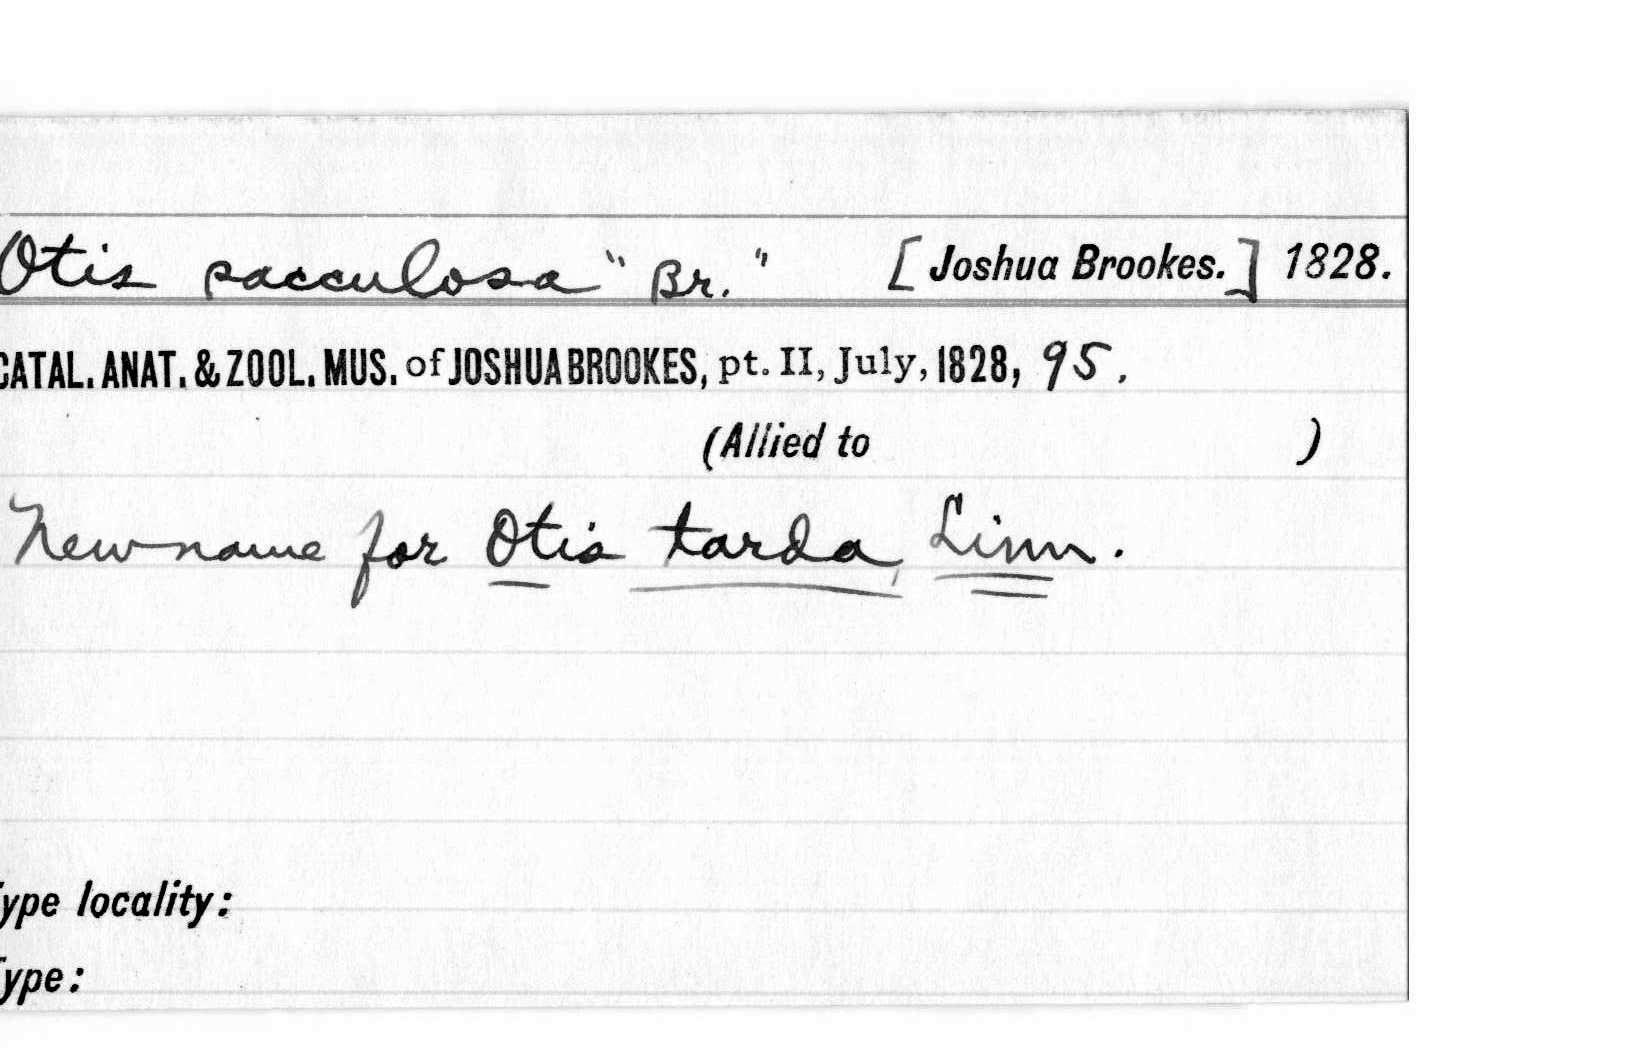 Otis sacculosa "Br." [Joshua Brookes.] 1828.
CATAL. ANAT. & ZOOL. MUS. of JOSHUA BROOKES, pt. II, July, 1828, 95.
(Allied to )
New name for Otis tarda, Linn.
Type locality:
Type: